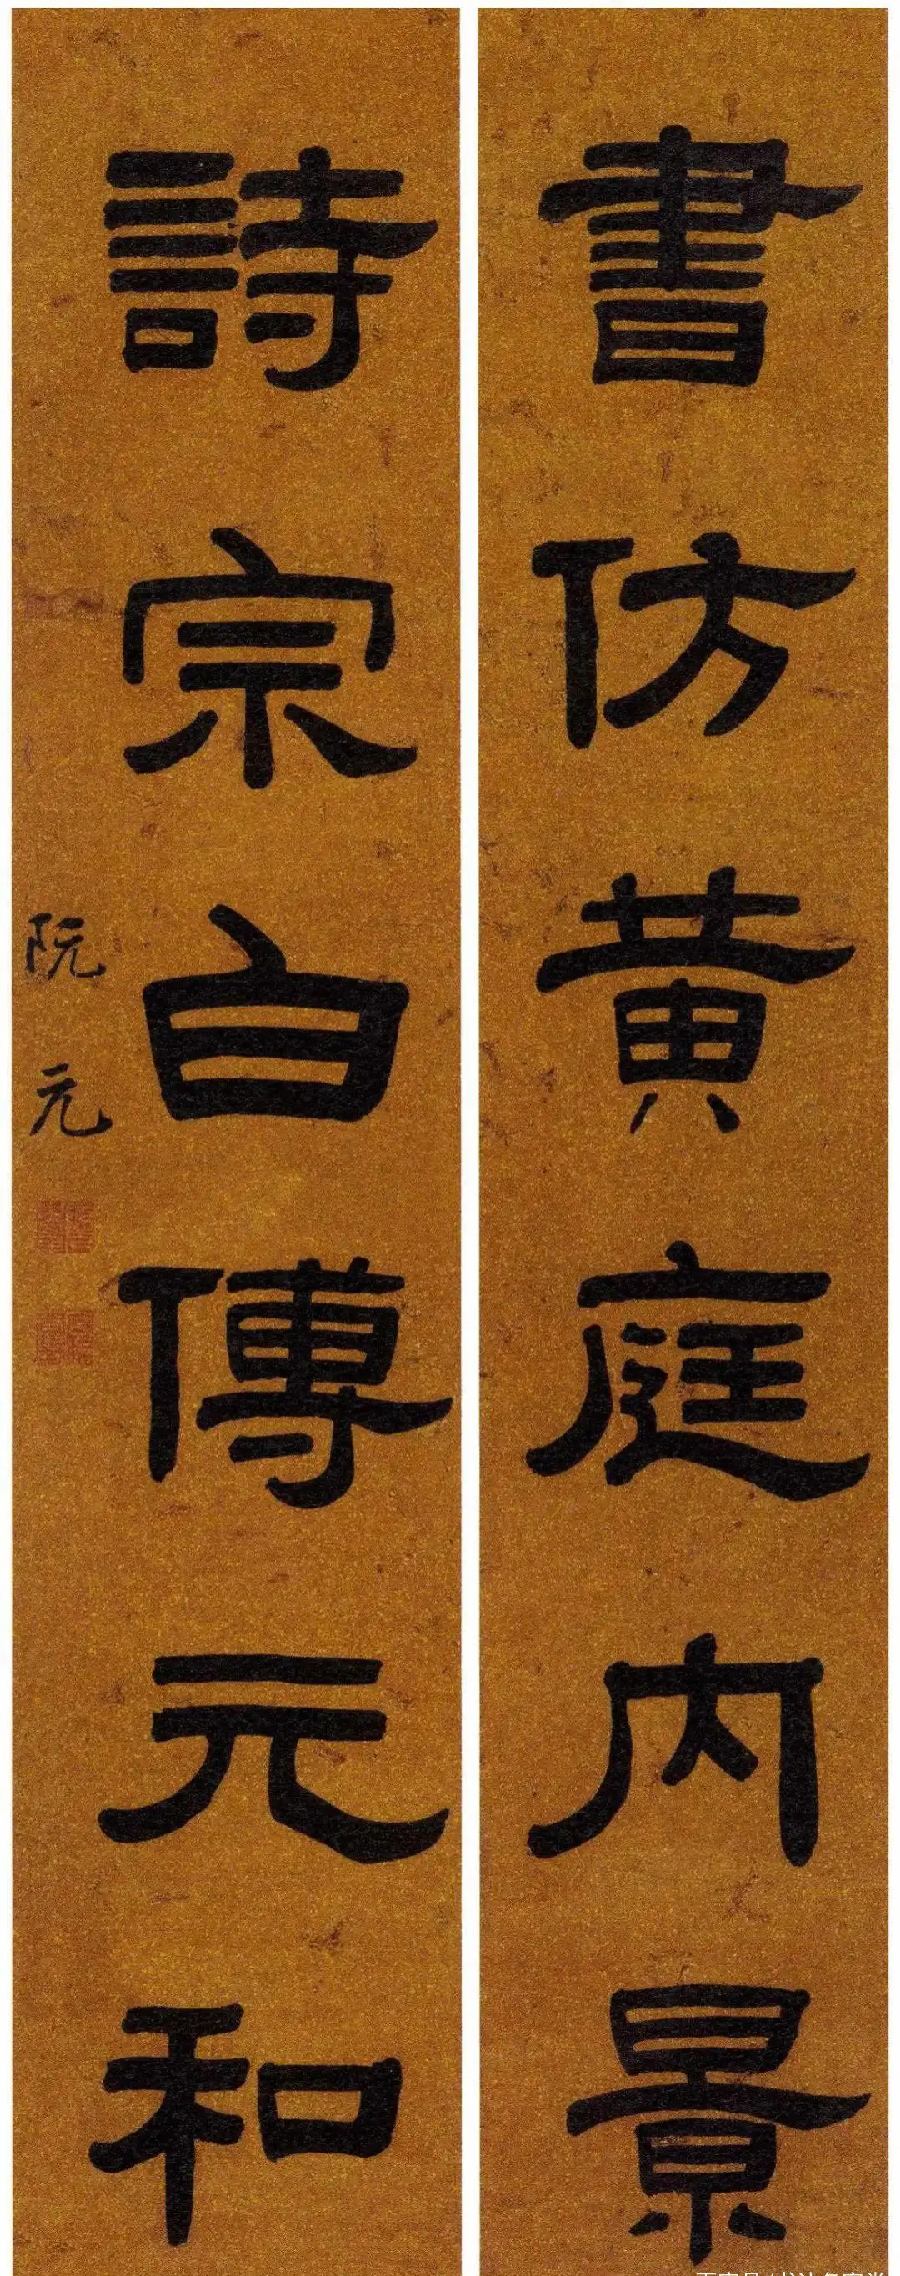 書仿黃庭内景
詩宗白傅元和
阮元